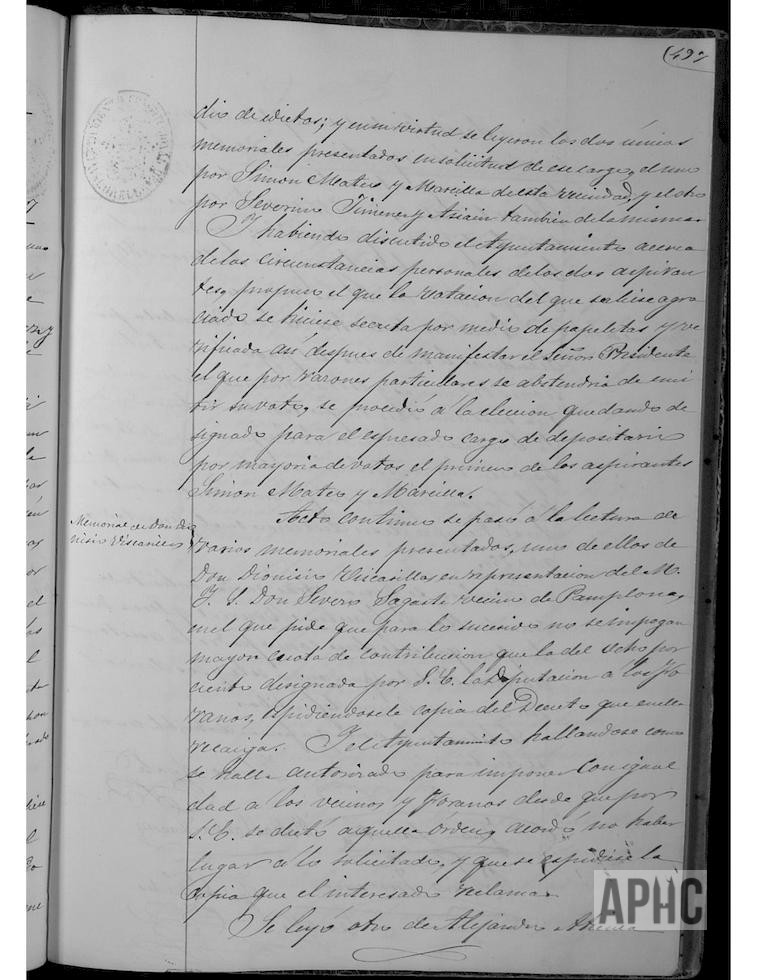 497
dio de edictos; y en su virtud se leyeron los dos únicos
memoriales presentados en solicitud de ese cargo, el uno
por Simon Mateo y Marcilla de esta vecindad, y el otro
por Severino Timener y Asiain tambien de la misma.
Y habiendo discutido el Ayuntamiento acerca
de las circunstancias personales de los dos aspiran
tes, propuso el que la votacion del que saliese agra
ciado se hiciese secreta por medio de papeletas y ve
rificada asi despues de manifestar el Señor Presidente
el que por razones particulares se abstendria de emi
tir su voto, se procedió á la eleccion quedando de
signado para el espresado cargo de depositario
por mayoria de votos el primero de los aspirantes
Simon Mateo y Marcilla.
Memorial de Don Dio
nisio Viscasillas
Acto continuo se pasó á la lectura de
varios memoriales presentados, uno de ellos de
Don Dionisio Viscasillas, en representacion del M.
Y. S. Don Severo Sagasti vecino de Pamplona,
en el que pide que para lo sucesivo no se impogan
mayor cuota de contribucion que la del ocho por
ciento designada por S. E. la Diputacion á los fo
ranos, espidiendosele copia del Decreto que en ella
recaiga. Y el Ayuntamiento hallandose como
se halla autorizado para imponer con igual
dad a los vecinos y foranos desde que por
S. E. se dictó aquella órden, acordó no haber
lugar á lo solicitado, y que se espidiese la
copia que el interesado reclama.
Se leyó otro de Alejandro
APHC